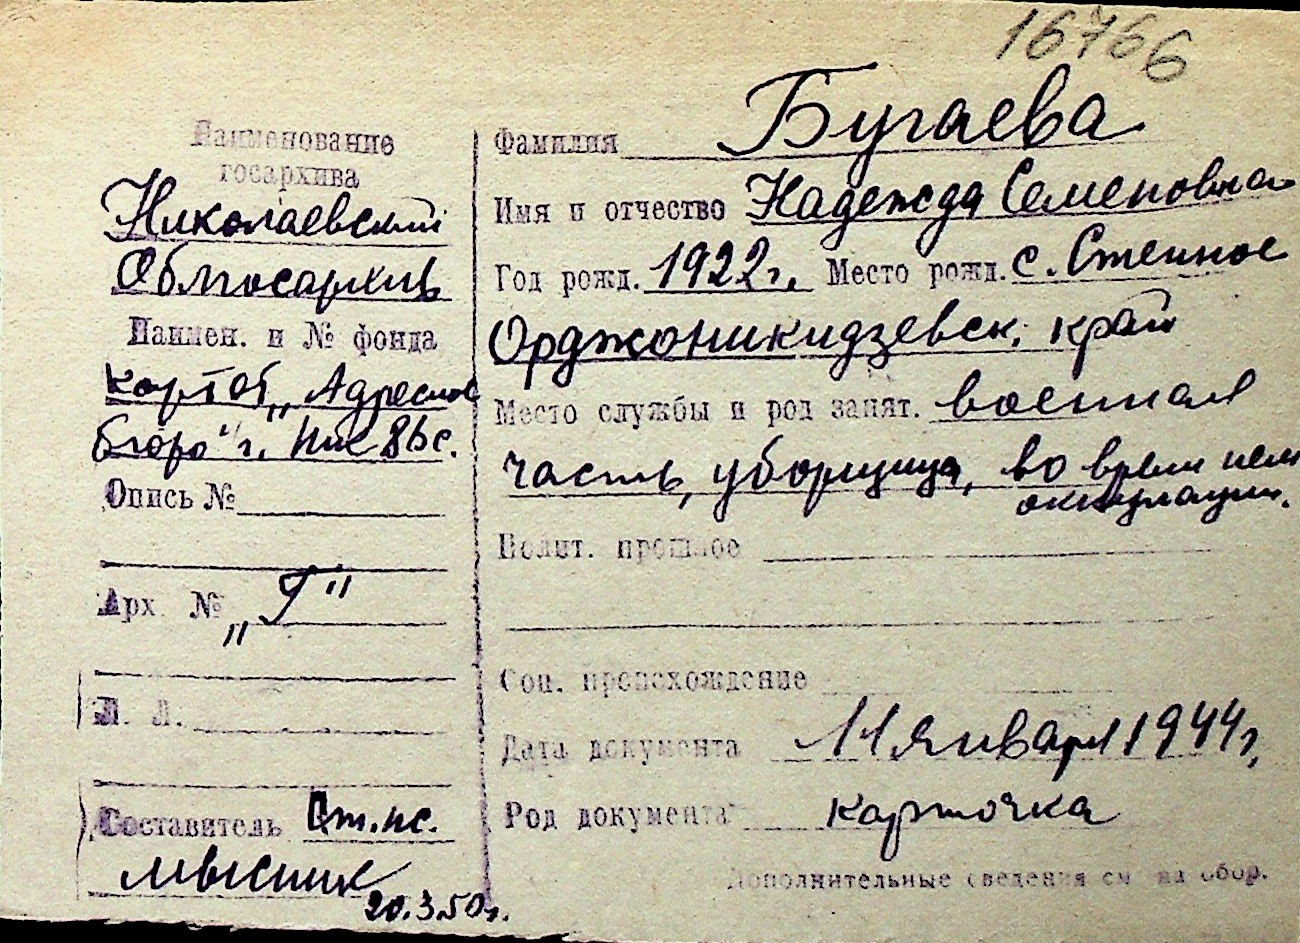 16766
Наименование
госархива
Николаевский
Облгосархив
Наимен. и № фонда
картот. „Адресное
бюро" г.
Опись №
Арх №
„Г"
Л. Л.
Составитель Ст.нс.
20.3.50г.
Фамилия Бугаева
Имя и отчество Надежда Семеновна
Год рожд. 1922г. Место рожд. с. Степное
Орджоникидзевск. край
Место службы и род занят. военная
часть, уборщица, во время нем
оккупации.
Полит. прошлое
Соц. происхождение
Дата документа 11 января 1944г.
Род документа карточка
Дополнительные сведения см на обор.